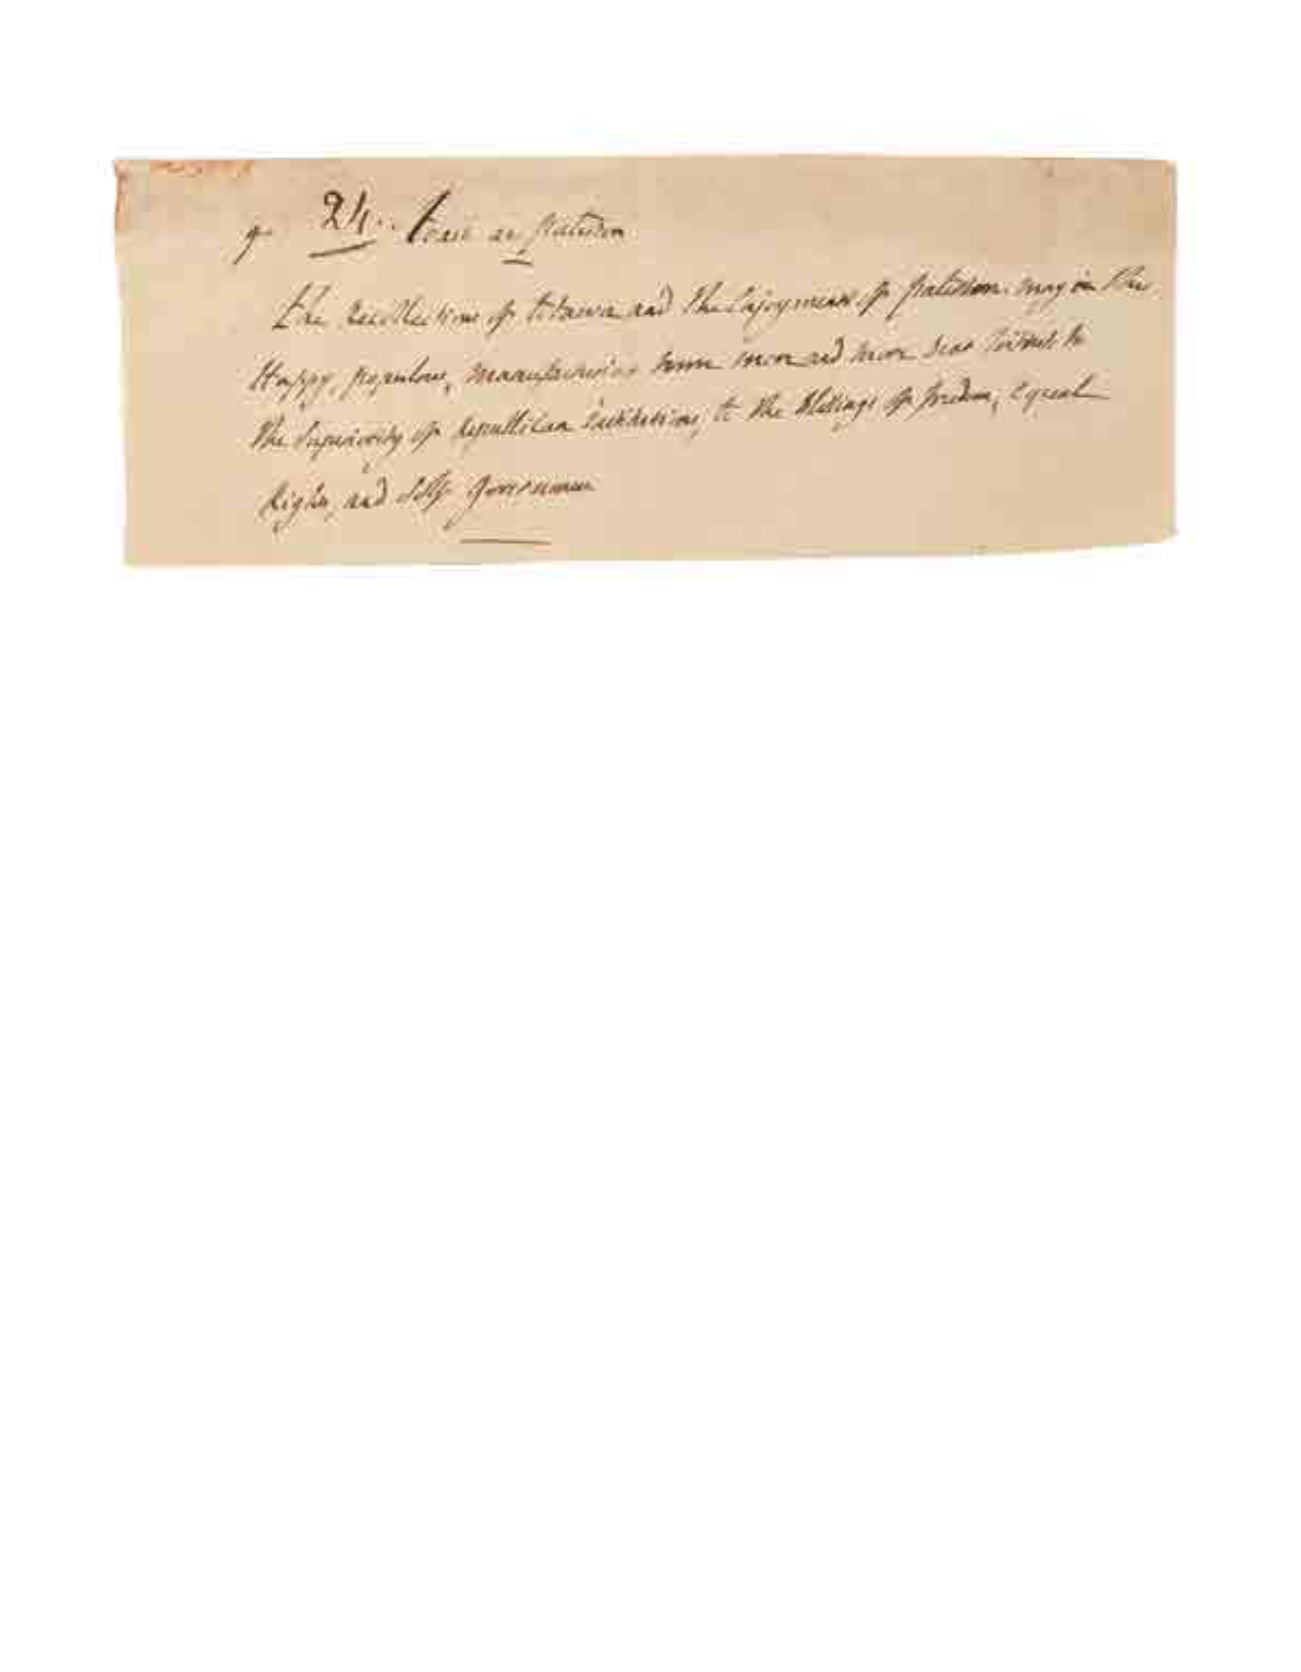 24. Toast at Paterson
The Recollections of Totawa and the Enjoyments of Paterson. may in this
Happy, populous, manufacturing town more and more bear Witness to
the Superiority of Republican Institutions, to the Blessings of freedom, Equal
Rights, and Self Government